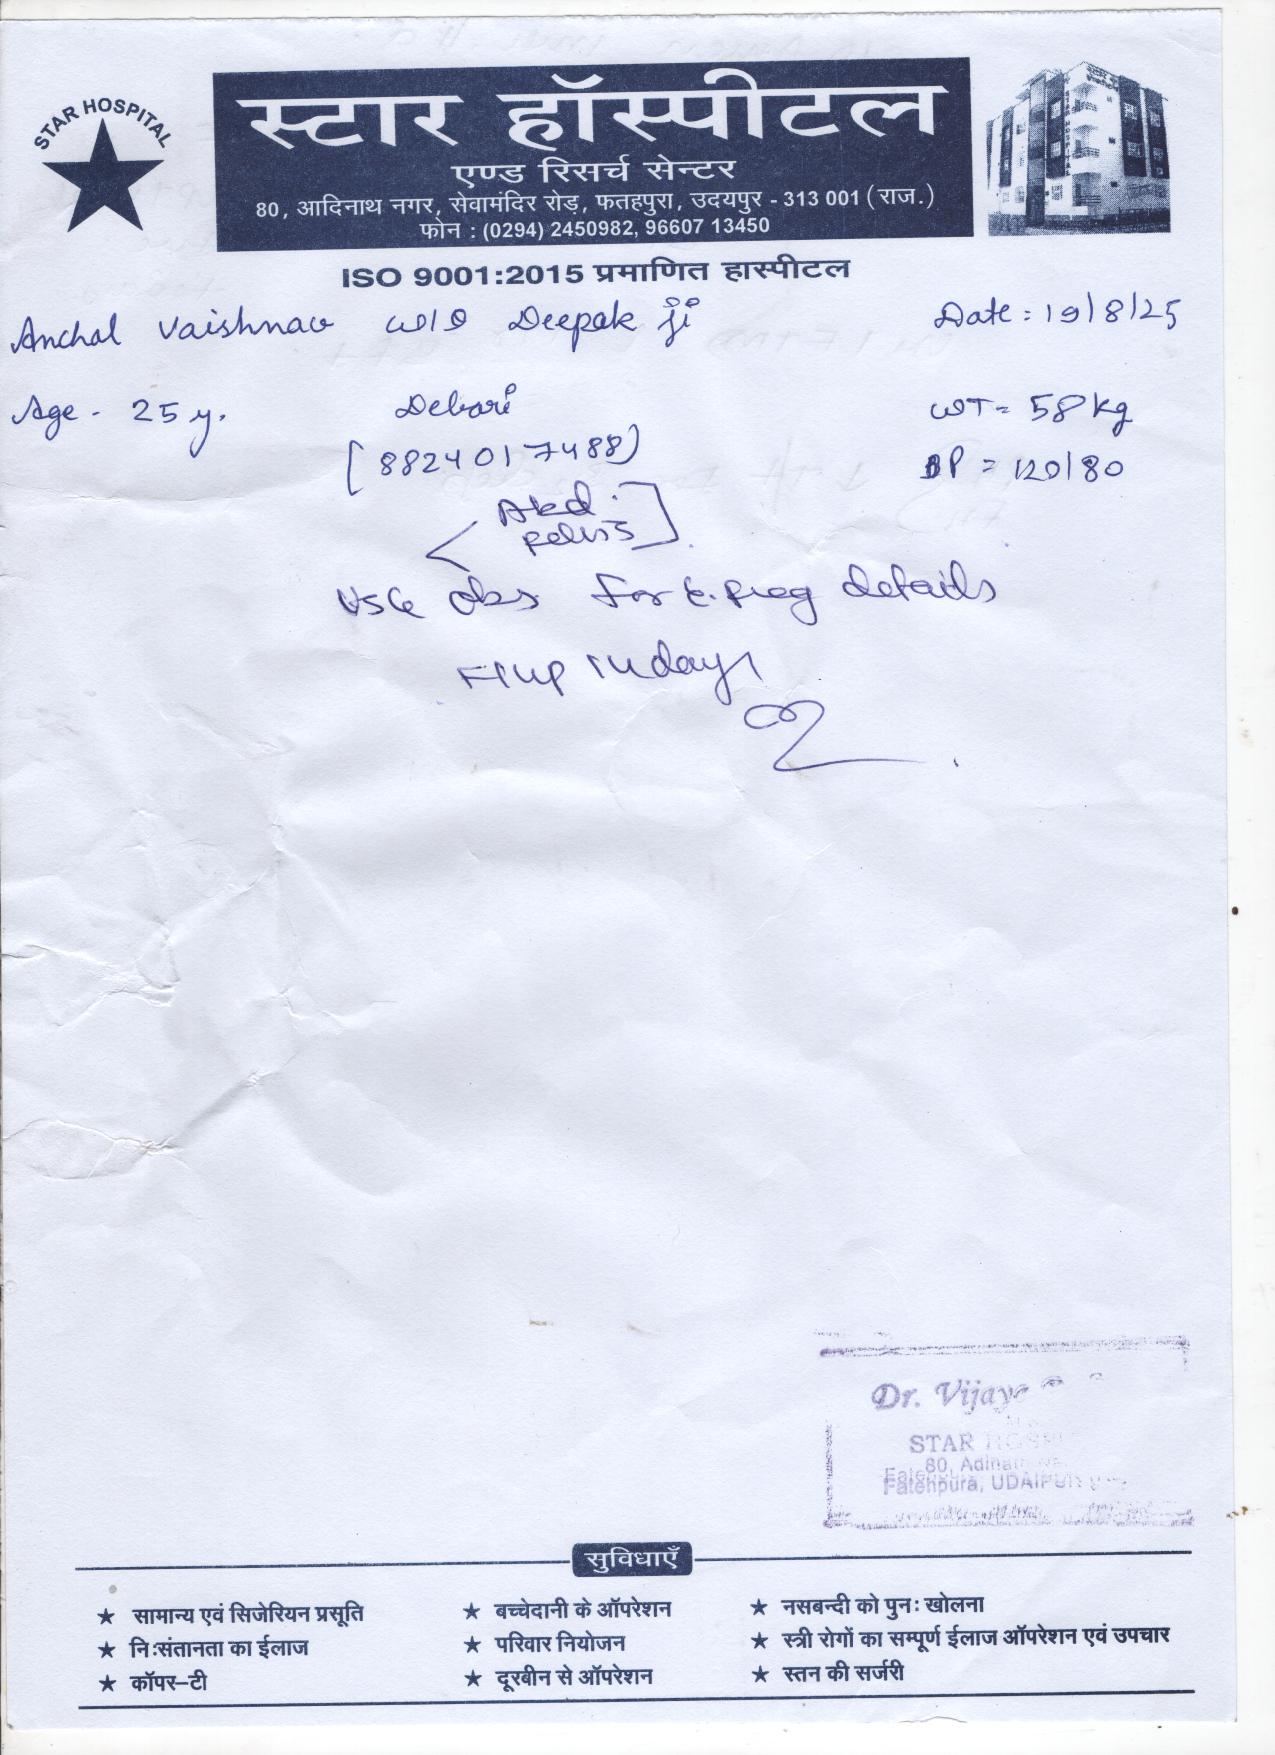 STAR HOSPITAL
स्टार हॉस्पीटल
एण्ड रिसर्च सेन्टर
80, आदिनाथ नगर, सेवामंदिर रोड़, फतहपुरा, उदयपुर - 313 001 (राज.)
फोन : (0294) 2450982, 96607 13450
ISO 9001:2015 प्रमाणित हास्पीटल
Anchal Vaishnav w/o Deepak ji Date : 19/8/25
Age - 25 y. Debari WT = 58 kg
[8824017488) BP = 120/80
Abd.
pelvis
USG obs for preg details
days
Dr. Vijay
STAR HOSPI
80, Adinath
Fatehpura, UDAIPUR
सुविधाएँ
★ सामान्य एवं सिजेरियन प्रसूति ★ बच्चेदानी के ऑपरेशन ★ नसबन्दी को पुनः खोलना
★ निःसंतानता का ईलाज ★ परिवार नियोजन ★ स्त्री रोगों का सम्पूर्ण ईलाज ऑपरेशन एवं उपचार
★ कॉपर–टी ★ दूरबीन से ऑपरेशन ★ स्तन की सर्जरी